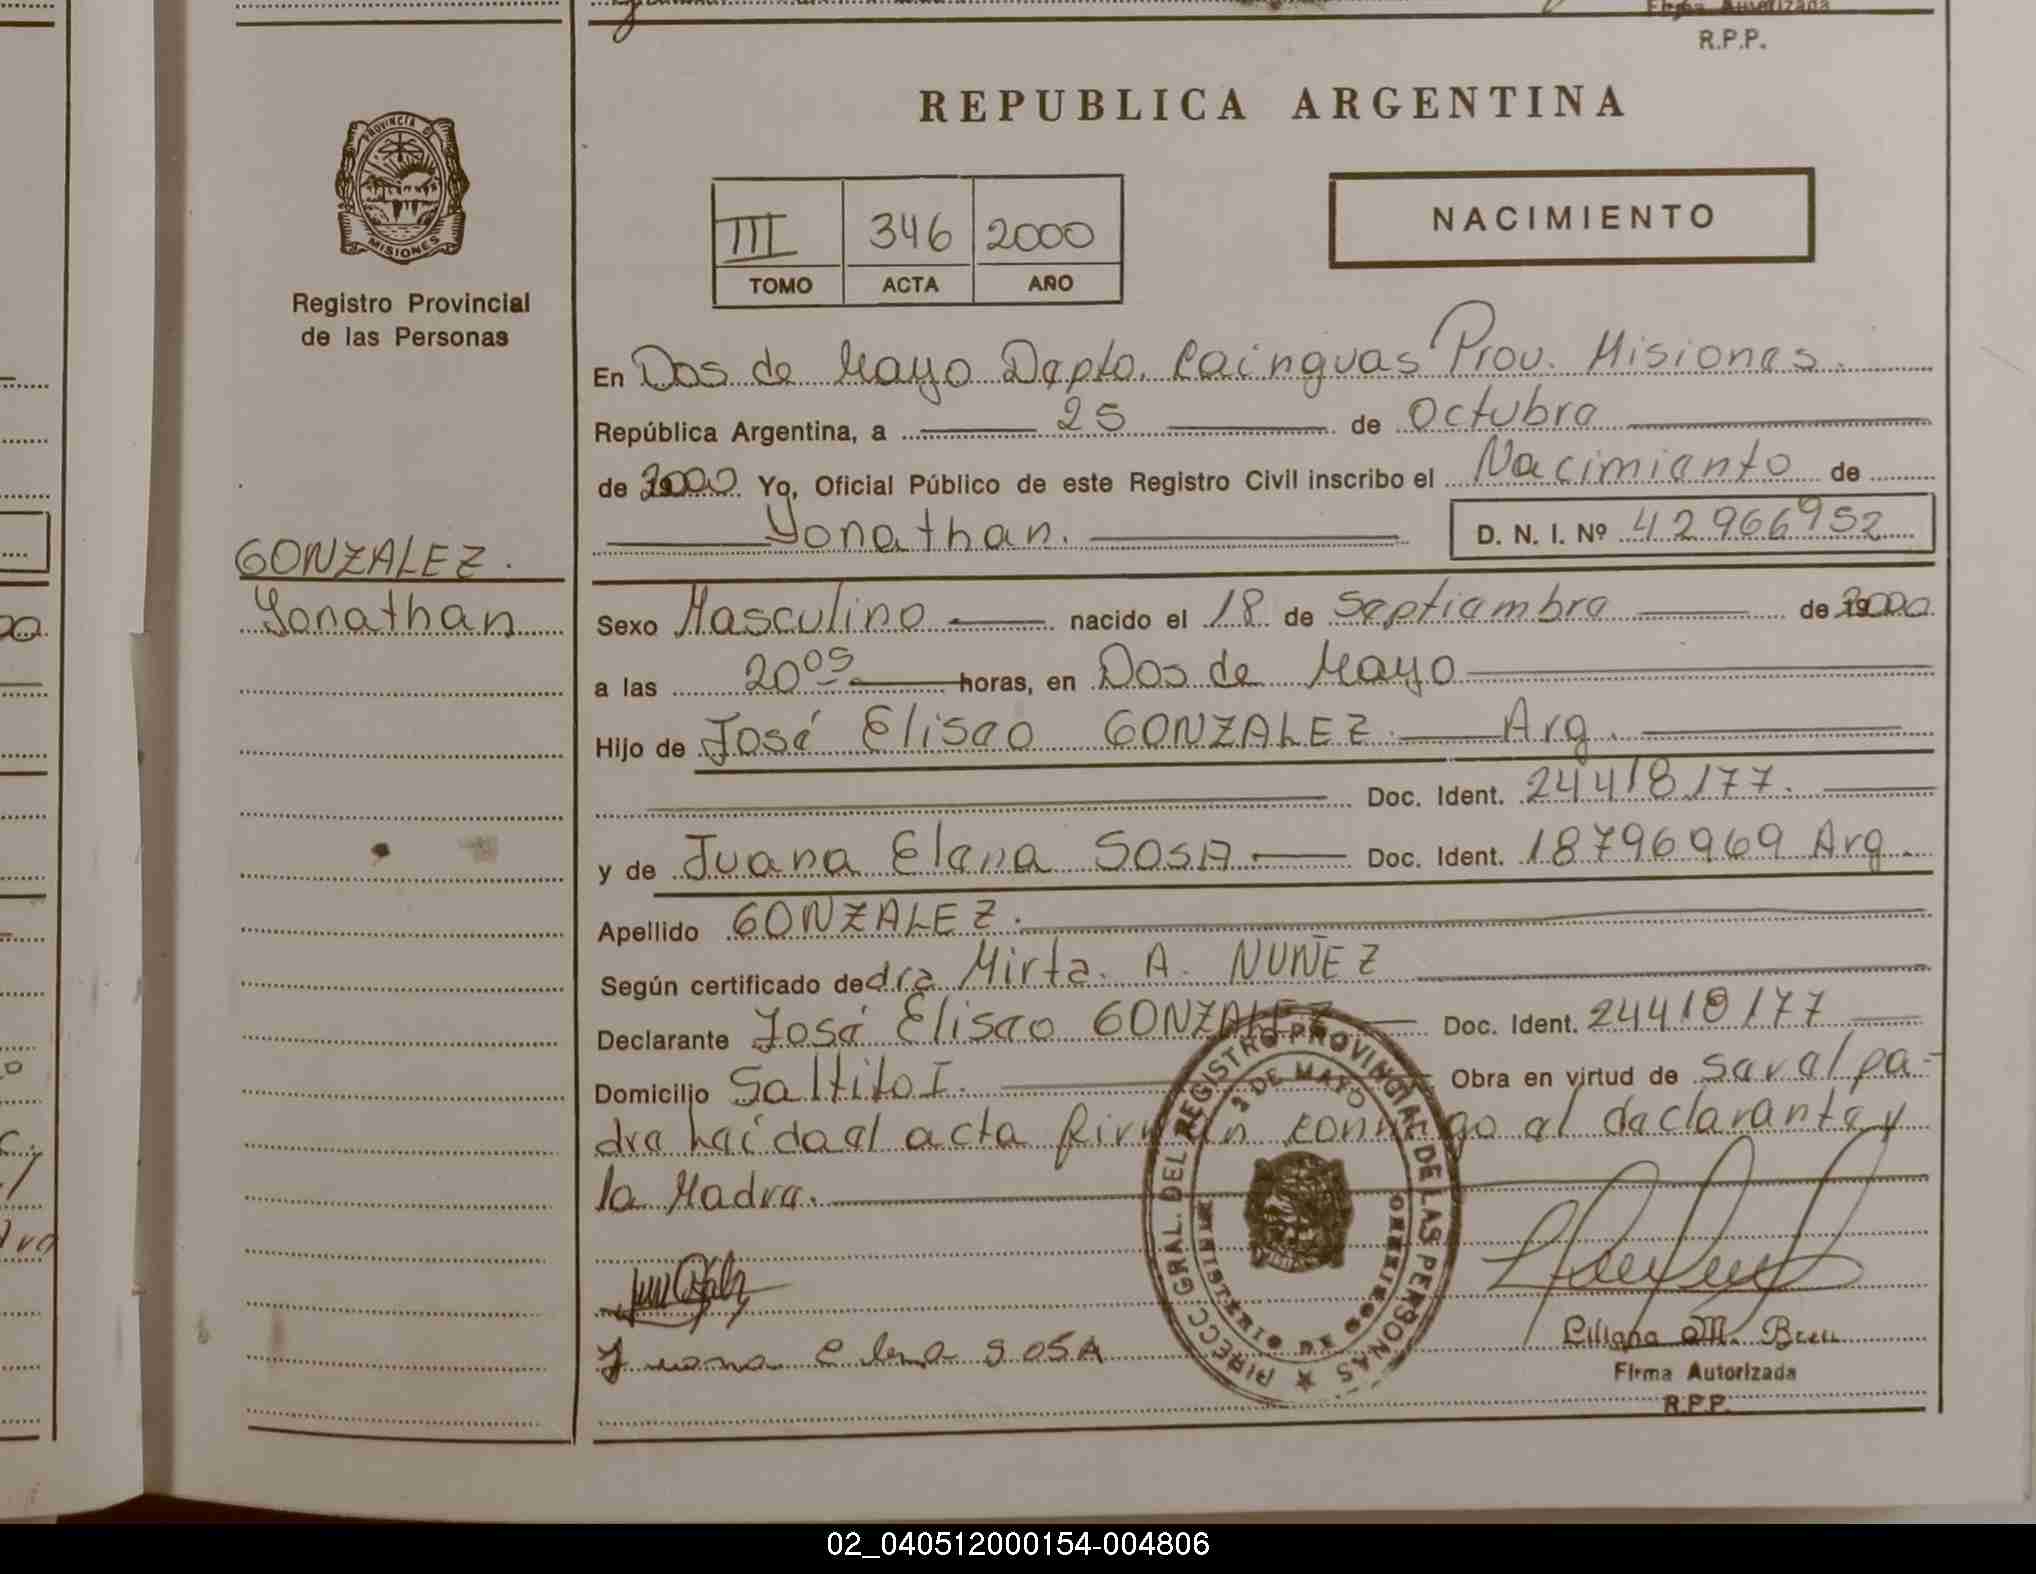 Firma Autorizada
R.P.P.
REPUBLICA ARGENTINA
PROVINCIA D
MISIONES
Registro Provincial
de las Personas
III 346 2000
TOMO ACTA AÑO
NACIMIENTO
En Dos de Mayo Depto. Cainguas Prov. Misiones.
República Argentina, a 25 de Octubre
de 2000 Yo, Oficial Público de este Registro Civil inscribo el Nacimiento de
Yonathan. D. N. I. Nº 42966952
GONZALEZ.
Yonathan
Sexo Masculino nacido el 18 de Septiembre de 2000
a las 20 05 horas, en Dos de Mayo
Hijo de José Eliseo GONZALEZ. Arg.
Doc. Ident. 24418177.
y de Juana Elena SOSA Doc. Ident. 18796969 Arg.
Apellido GONZALEZ.
Según certificado de dra Mirta. A. NUÑEZ
Declarante José Eliseo GONZALEZ Doc. Ident. 24418177
Domicilio Saltito I. Obra en virtud de ser el pa-
dre leída el acta firman conmigo el declarante y
la Madre.
DIRECC GRAL. DEL REGISTRO PROVINCIAL DE LAS PERSONAS
2 DE MAYO
MINISTERIO DE GOBIERNO
Juana elena SOSA
Liliana M.
Firma Autorizada
R.P.P.
02_040512000154-004806